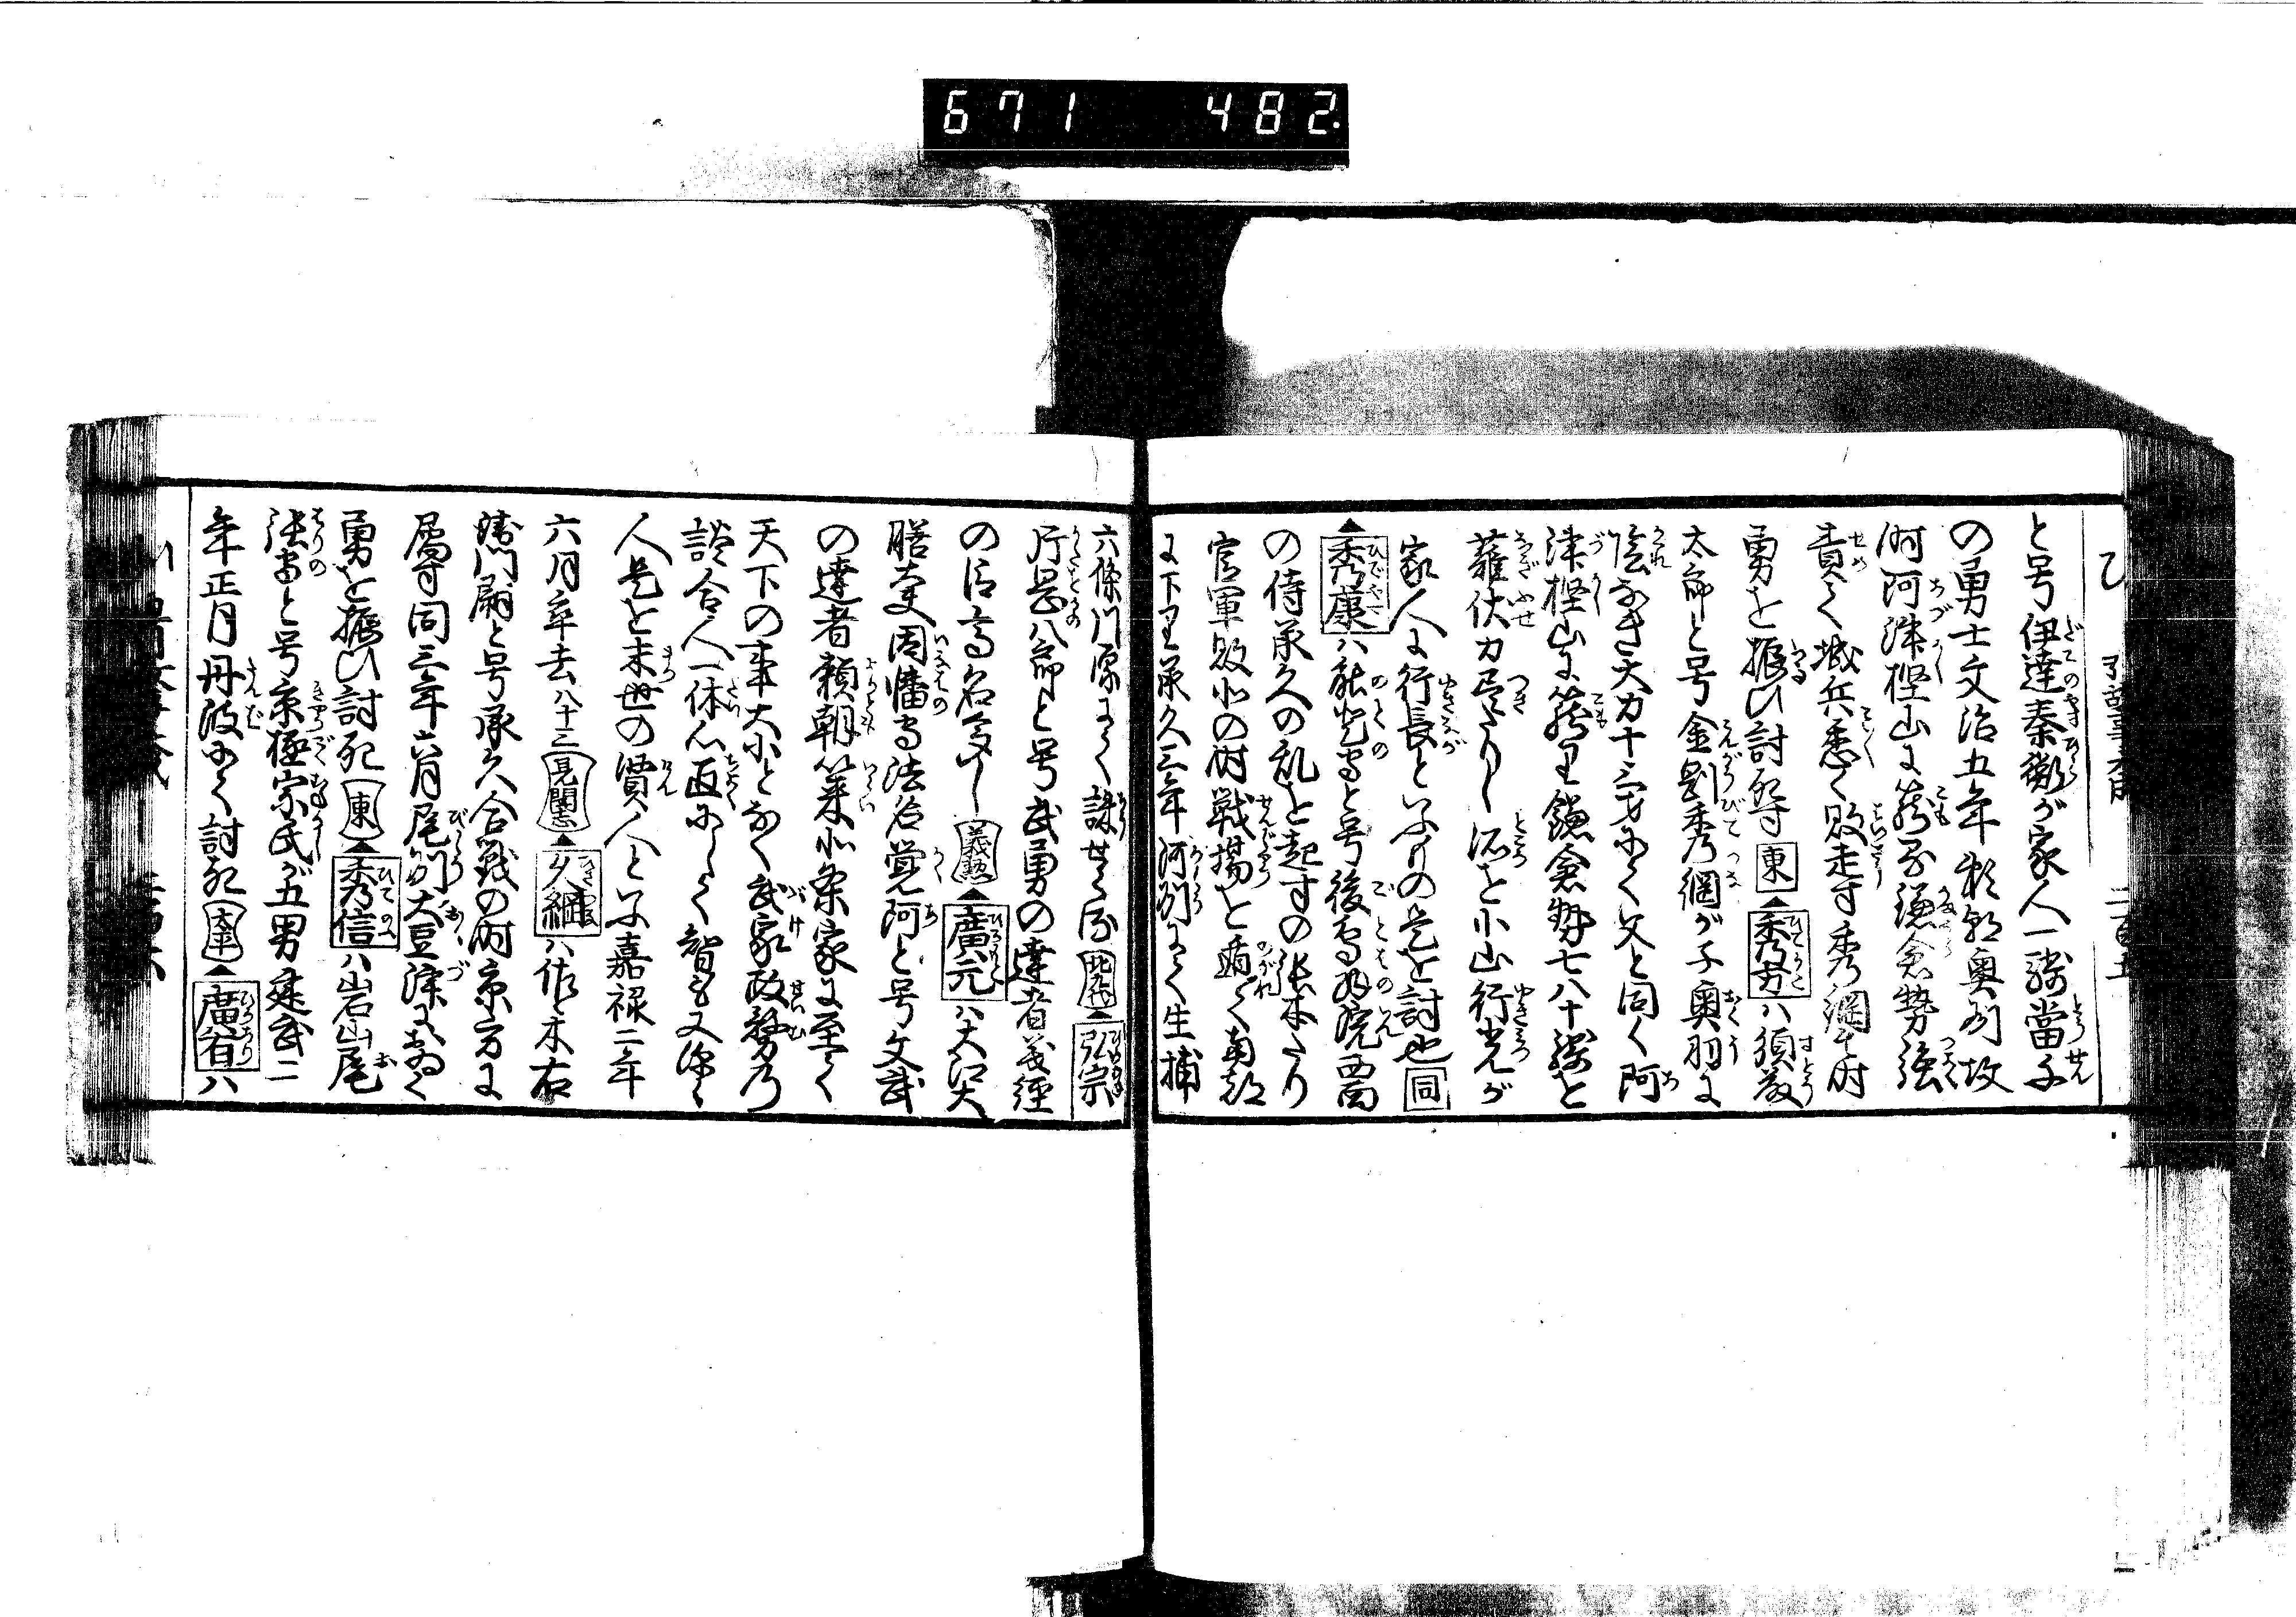 671 482
と号伊達泰衡が家人一騎當千
の勇士文治五年頼朝奥州攻
の時阿津樫山に籠る鎌倉勢強
責く城兵悉く敗走す秀綱其時
勇を振ひ討死す 東 ▲秀方ハ須藤
太郎と号金剛秀綱が子奥羽に
陰なき大力十三才にて父と同く阿
津樫山に籠り鎌倉勢七八十騎を
薙伏力尽たりし所を小山行光が
家人に行長といふもの是を討也 同
▲秀康ハ能登守と号後鳥羽院西面
の侍承久の乱を起すの張本たり
官軍敗北の時戦場を遁て南都
に下り承久三年河州にて生捕
六條川原にて誅せらる 北九代 ▲弘宗
片岡八郎と号武勇の達者義經
の臣高名多し 義勲 ▲廣元ハ大江大
膳大夫因幡守法名覚阿と号文武
の達者頼朝以来北条家に至て
天下の事大小となく武家政務の
談合人一体心直にして智も又深く
人是を末世の賢人といふ嘉禄二年
六月卒去八十三 見聞志 ▲久綱ハ佐々木右
衛門尉と号承久合戦の時京方に
属す同三年六月尾州大豆津にて
勇を振ひ討死 東 ▲秀信ハ岩山尾
張守と号京極宗氏が五男建武二
年正月丹波にて討死 ▲廣有ハ